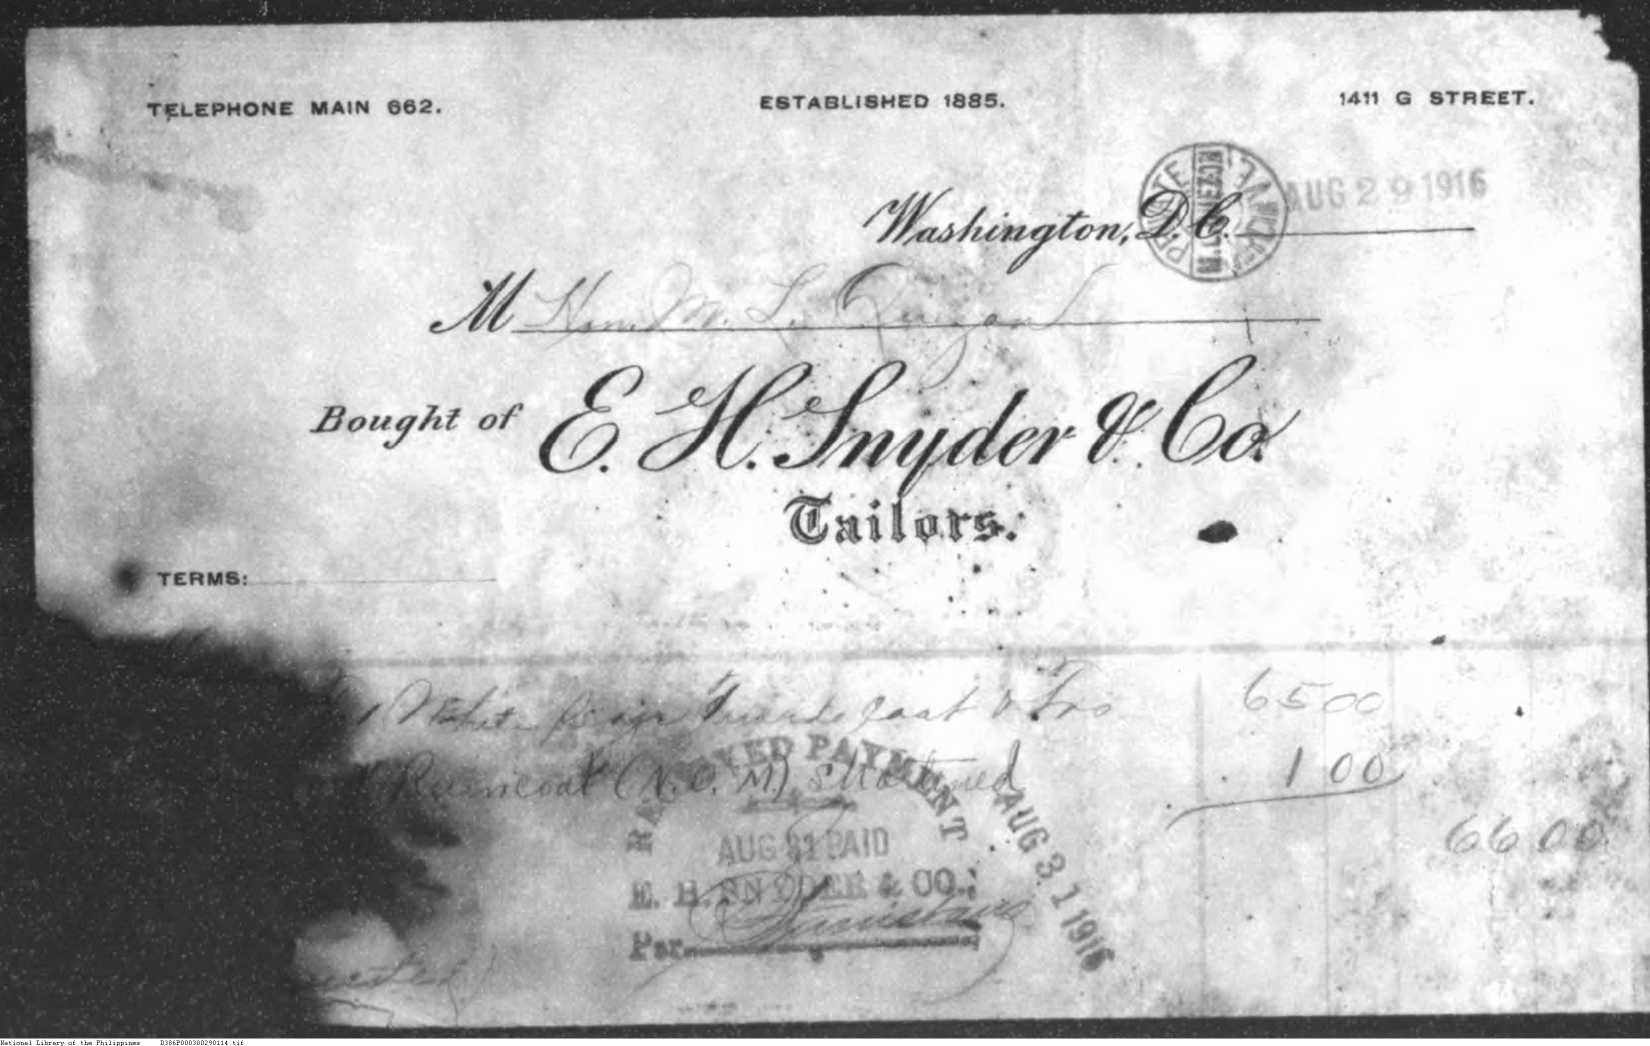 TELEPHONE MAIN 662.
ESTABLISHED 1885.
1411 G STREET.
Washington, D.C. AUG 29 1916
PRIVATE
M Hon. M. L. Quezon
Bought of E. H. Snyder & Co.
Tailors.
TERMS:
coat & 6500
Raincoat (N.C.M.) 1 00
6600
RECEIVED PAYMENT
AUG 31 1916
AUG 31 PAID
E. H. SNYDER & CO.,
Per
National Library of the Philippines D386P000300290114.tif